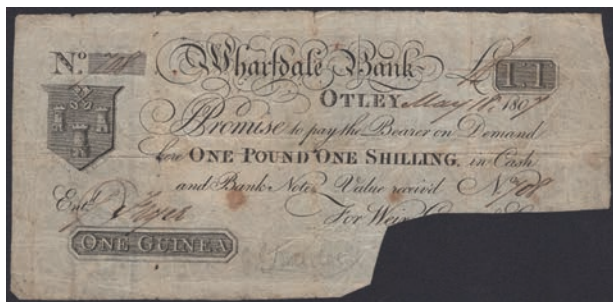 No. 708 Wharfdale Bank £ 1 1
OTLEY May 18. 1807
I Promise to pay the Bearer on Demand
here ONE POUND ONE SHILLING, in Cash
and Bank Notes Value receiv'd No. 708
Entd. Fryer For Weir
ONE GUINEA